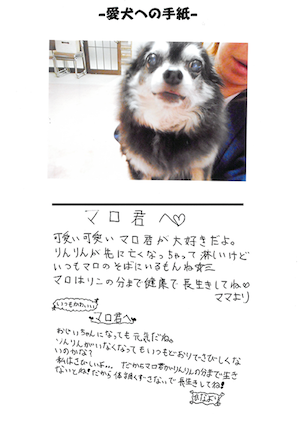 -愛犬への手紙-
マロ君へ♡
可愛い可愛いマロ君が大好きだよ。
りんりんが先に亡くなっちゃって淋しいけど
いつもマロのそばにいるもんね☆彡
マロはリンの分まで健康で長生きしてね♡
ママより
いつもかわいい
♥マロ君へ♥
おじいちゃんになっても元気だね。
りんりんがいなくなってもいつもどおりでさびしくな
いのかなぁ?
私はさびしいよ… だからマロ君がりんりんの分まで生き
ないとね!だから体調くずさないで長生きしてね!